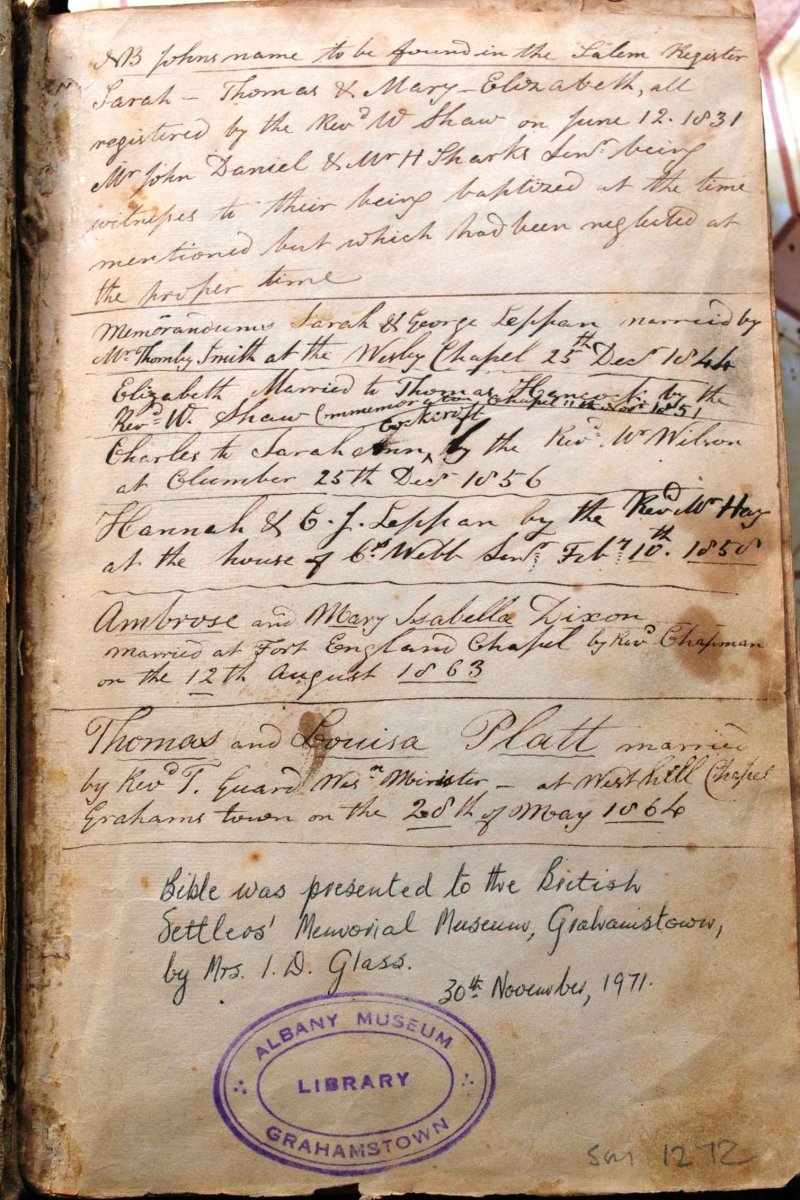 NB Johns name to be found in the Salem Register
Sarah – Thomas & Mary – Elizabeth, all
registered by the Revd W Shaw on June 12. 1831
Mr John Daniel & Mr H Sharks Senr. being
witnesses to their being baptized at the time
mentioned but which had been neglected at
the proper time
Memorandums Sarah & George Leppan married by
Mr Thornby Smith at the Wesley Chapel 25th Decr 1844
Elizabeth Married to Thomas Hancock by the
Revd W. Shaw Commemoration Chapel Novr 1851
Cockcroft
Charles to Sarah Ann, by the Revd. Wm Wilson
at Clumber 25th Decr 1856
Hannah & C. J. Leppan by the Revd Mr Hay
at the house of Webb Senr Feby 10th. 1858
Ambrose and Mary Isabella Dixon
married at Fort England Chapel by Revd Chapman
on the 12th August 1863
Thomas and Louisa Platt married
by Revd T. Guard Wesn Minister – at West hill Chapel
Grahams town on the 28th of May 1864
Bible was presented to the British
Settlers' Memorial Museum, Grahamstown,
by Mrs. I. D. Glass.
30th November, 1971.
ALBANY MUSEUM
LIBRARY
GRAHAMSTOWN
SM 1272